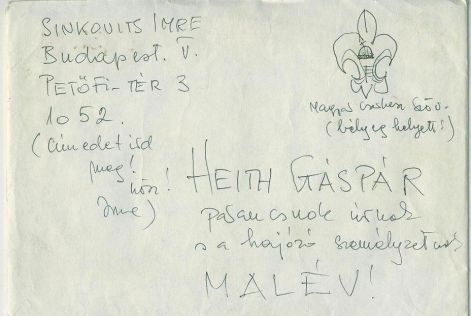 SINKOVITS IMRE
Budapest. V.
PETŐFI-TÉR 3
1052.
(Címedet írd
meg!
Imre)
Magyar Cserkész Szöv.
(bélyeg helyett!)
HEITH GÁSPÁR
pasancsnok úrnak
s a hajózó személyzetnek
MALÉV!